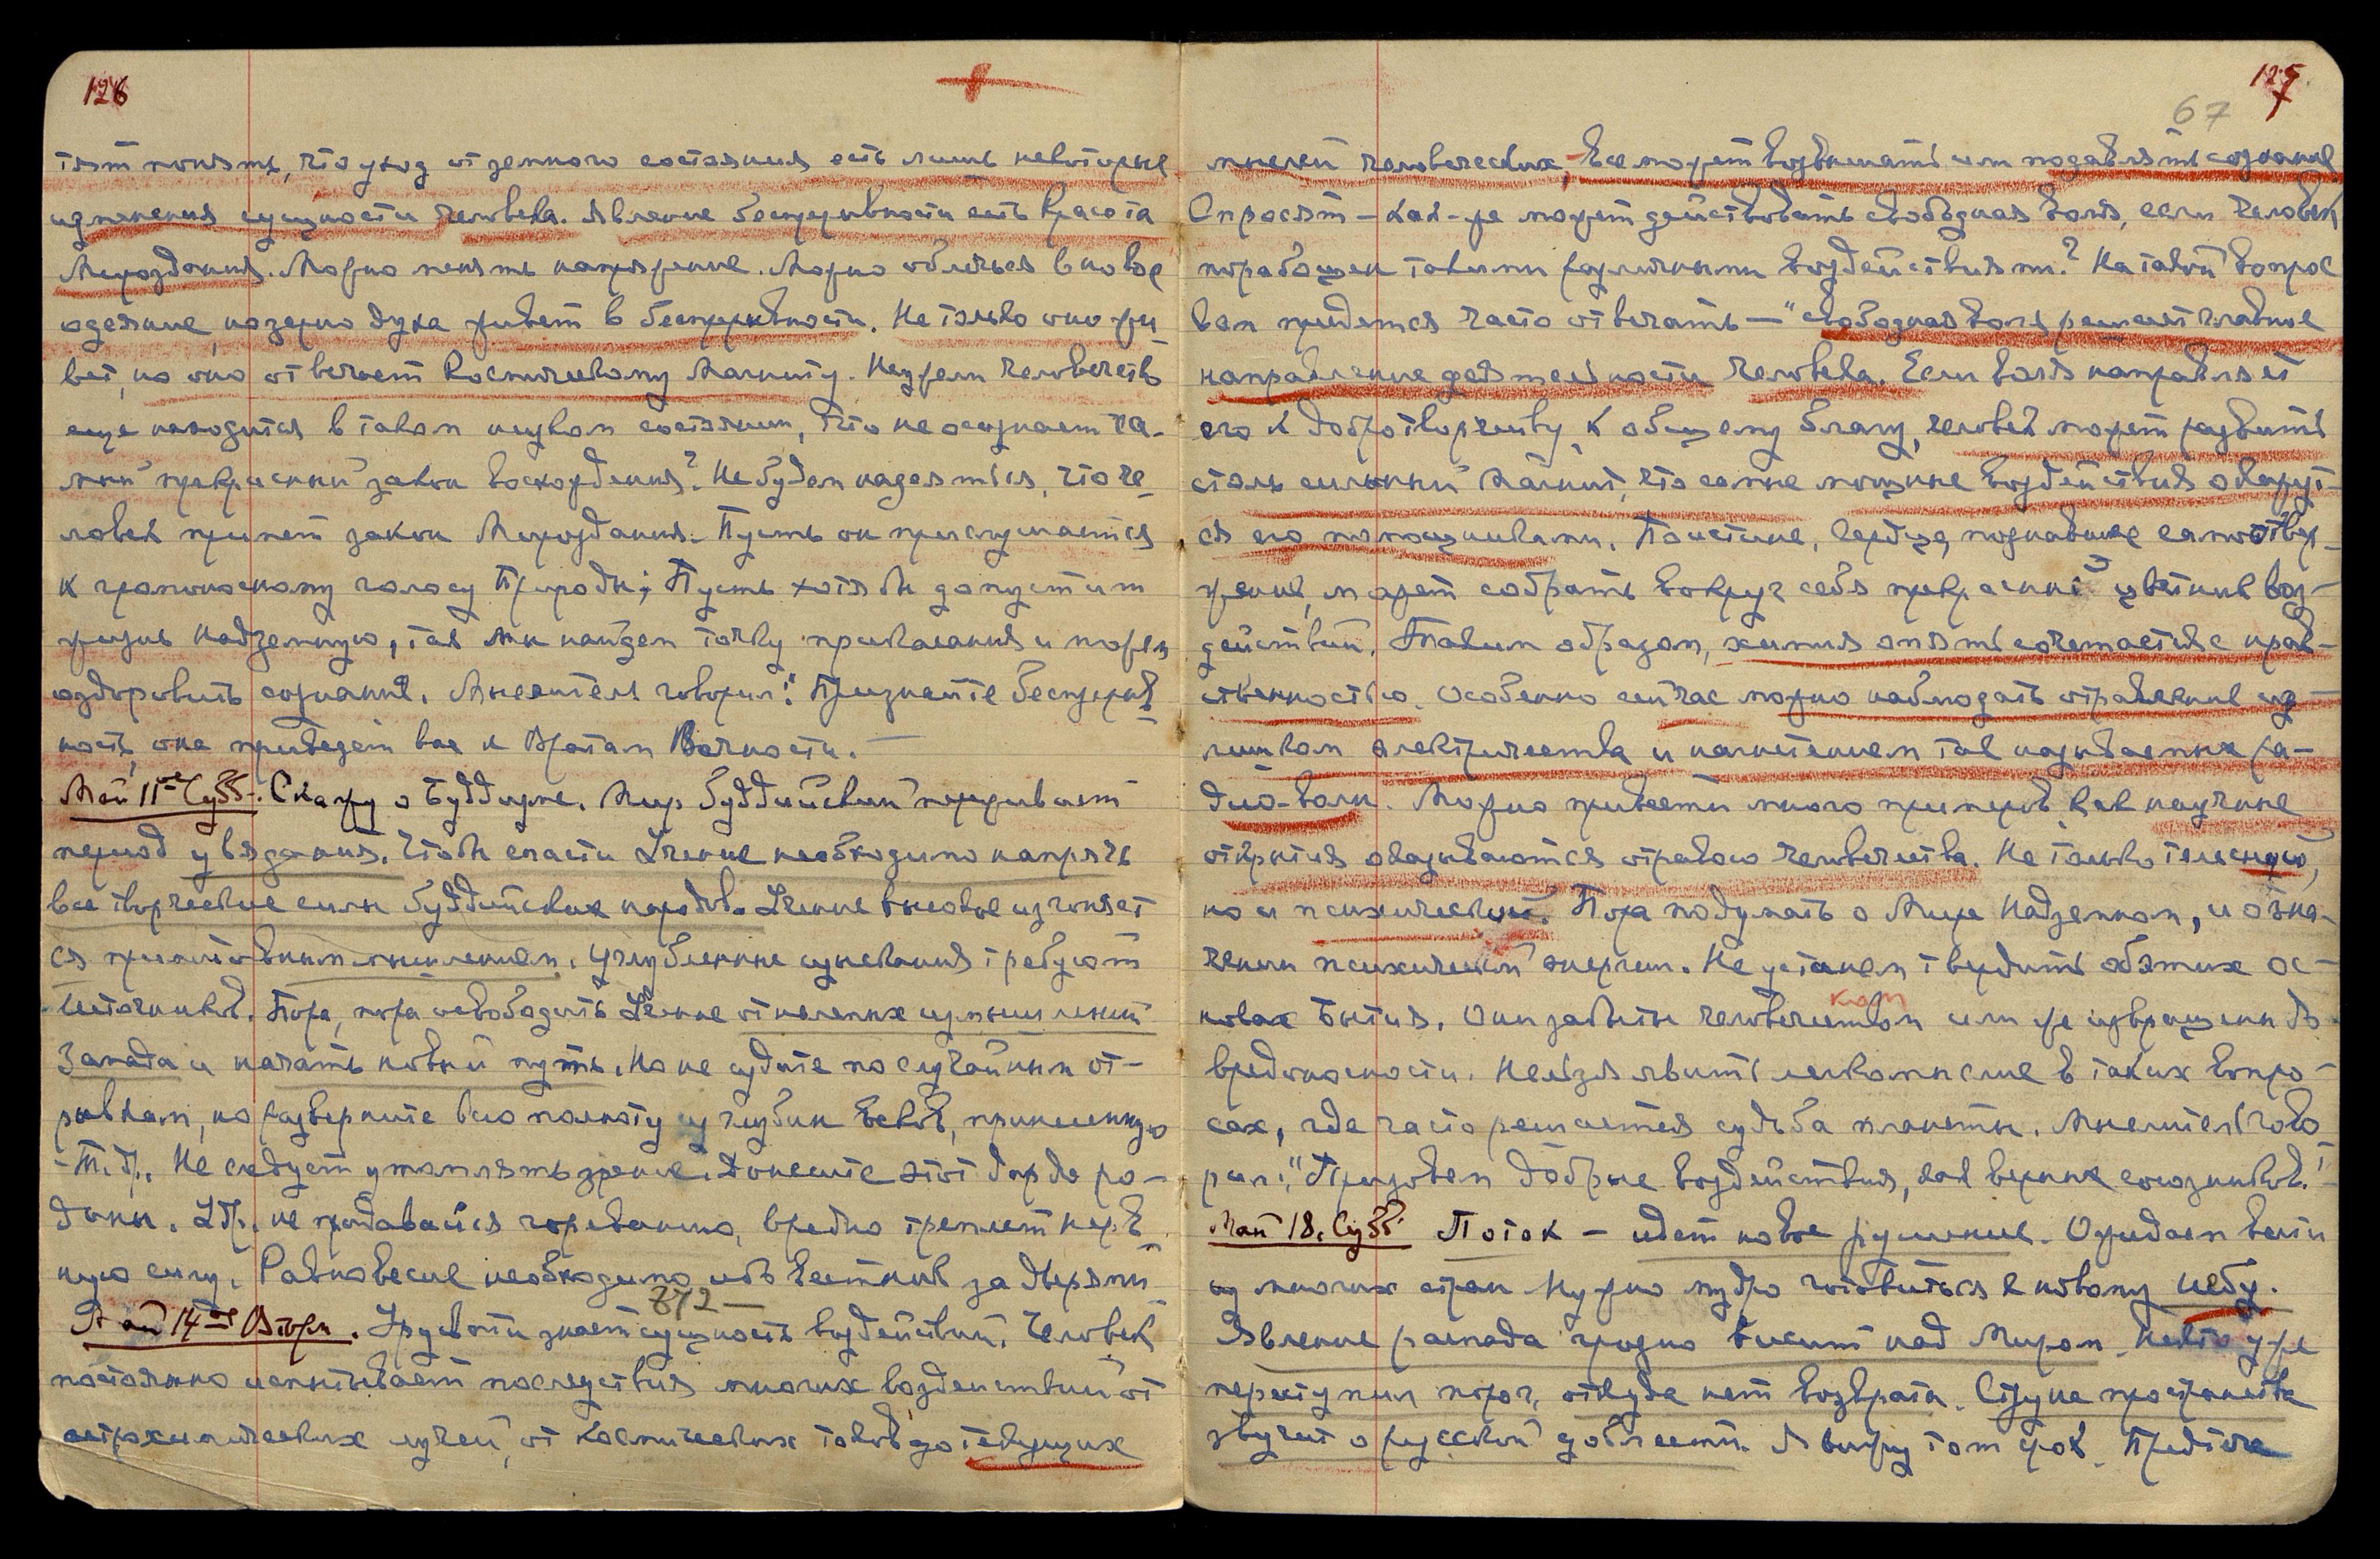 126
тят понять, что уход от земного состояния есть лишь некоторые
изменения сущности человека. Явление беспрерывности есть красота
Мироздания. Можно менять напряжение. Можно облечься в новое
одеяние, но зерно духа живет в беспрерывности. Не только оно жи-
вет, но оно отвечает Космическому Магниту. Неужели человечество
еще находится в таком низком состоянии, что не осознает са-
мый прекрасный закон восхождения? Не будем надеяться, что че-
ловек примет закон Мироздания. Пусть он прислушается
к громоносному голосу Природы; Пусть хотя бы допустит
жизнь Надземную, так мы найдем точку прикасания и можем
оздоровить сознание. Мыслитель говорил: "Признайте беспрерыв-
ность, она приведет вас к Вратам Вечности. —
Май 11ое Субб. Скажу о Буддизме. Мир буддийский переживает
период увядания. Чтобы спасти Учение необходимо напрячь
все творческие силы буддийских народов. Учение высокое изгоняет
ся примитивным мышлением. Углубленные искания требуют
источников. Пора, пора освободить Учение от нелепых измышлений
Запада и начать новый путь. Но не судите по случайным от-
рывкам, но разверните всю полноту из глубин веков, принесенную
Не следует утомлять зрение. Донесите этот дар до ро-
дины. не предавайся гореванию, вредно треплет нерв-
ную силу. Равновесие необходимо, ибо вестник за дверями
872 —
Май 14ое Вторн. Урусвати знает сущность воздействий. Человек
постоянно испытывает последствия многих воздействий от
астрохимических лучей, от космических токов до текущих
125
67
мыслей человеческих, все может возвышать или подавлять сознание
Спросят — как-же может действовать свободная воля, если человек
порабощен такими различными воздействиями? На такой вопрос
вам придется часто отвечать — "свободная воля решает главное
направление деятельности человека. Если воля направляет
его к добротворчеству, к общему благу, человек может развить
столь сильный магнит, что самые мощные воздействия окажут-
ся его помощниками. Поистине, сердце, познавшее самоотвер-
жение, может собрать вокруг себя прекрасный цветник воз-
действий. Таким образом, химия опять сочетается с нрав-
ственностью. Особенно сейчас можно наблюдать отравление из-
лишком электричества и нагнетением так называемых ра-
дио-волн. Можно привести много примеров, как научные
открытия оказываются отравою человечества. Не только телесною,
но и психической. Пора подумать о Мире Надземном, и о зна-
чении психической энергии. Не устанем твердить об этих ос-
ком
новах Бытия. Они забыты человечеством или же извращены до
вредоносности. Нельзя явить легкомыслие в таких вопро-
сах, где часто решается судьба планеты. Мыслитель гово
рил: "Призовем добрые воздействия, как верных союзников."
Май 18. Субб. Поток — идет новое решение. Ожидаем вести
из многих стран Нужно мудро готовиться к новому небу.
Явление распада грозно висит над Миром. Некто уже
переступил порог, откуда нет возврата. Струна пространства
звучит о русской доблести. Я вижу том срок. Предтеча